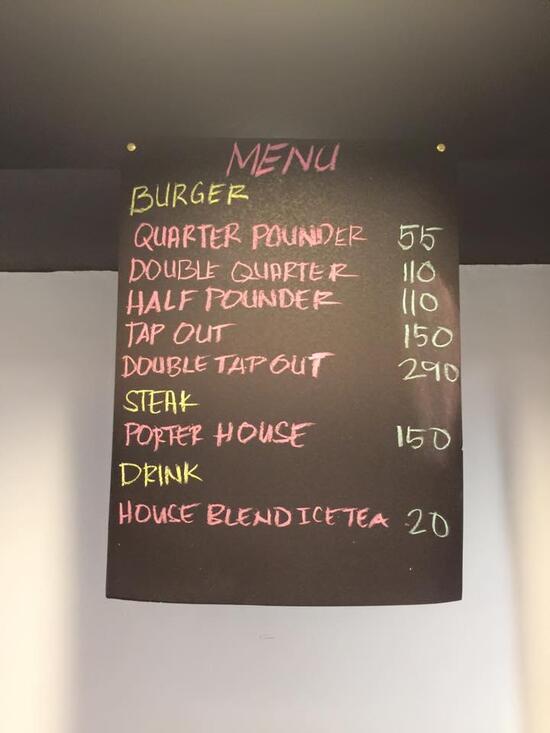 MENU
BURGER
QUARTER POUNDER 55
DOUBLE QUARTER 110
HALF POUNDER 110
TAP OUT 150
DOUBLE TAP OUT 290
STEAK
PORTER HOUSE 150
DRINK
HOUSE BLEND ICE TEA 20